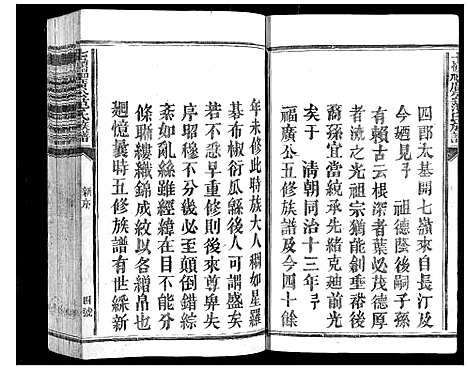 四郎太基開七嶺來自長汀及
今廼見孑 祖德蔭後嗣子孫
有賴古云根深者葉必茂德厚
者流光祖宗猶能創垂裔後
裔孫宜當繞承先緒克廸前光
矣于 清朝同治十三年孑
福廣公五修族譜及今四十餘
年未修此時族大人稠如星羅
碁布椒衍瓜緜後人可謂盛矣
若不急早重修後來尊卑失
序昭穆不分幾必至顛倒錯綜
紊如亂絲雖經緯在目不能分
條晰縷織錦成紋以各緒帛也
廻憶曩時五修族譜有世綵新
新序
四號